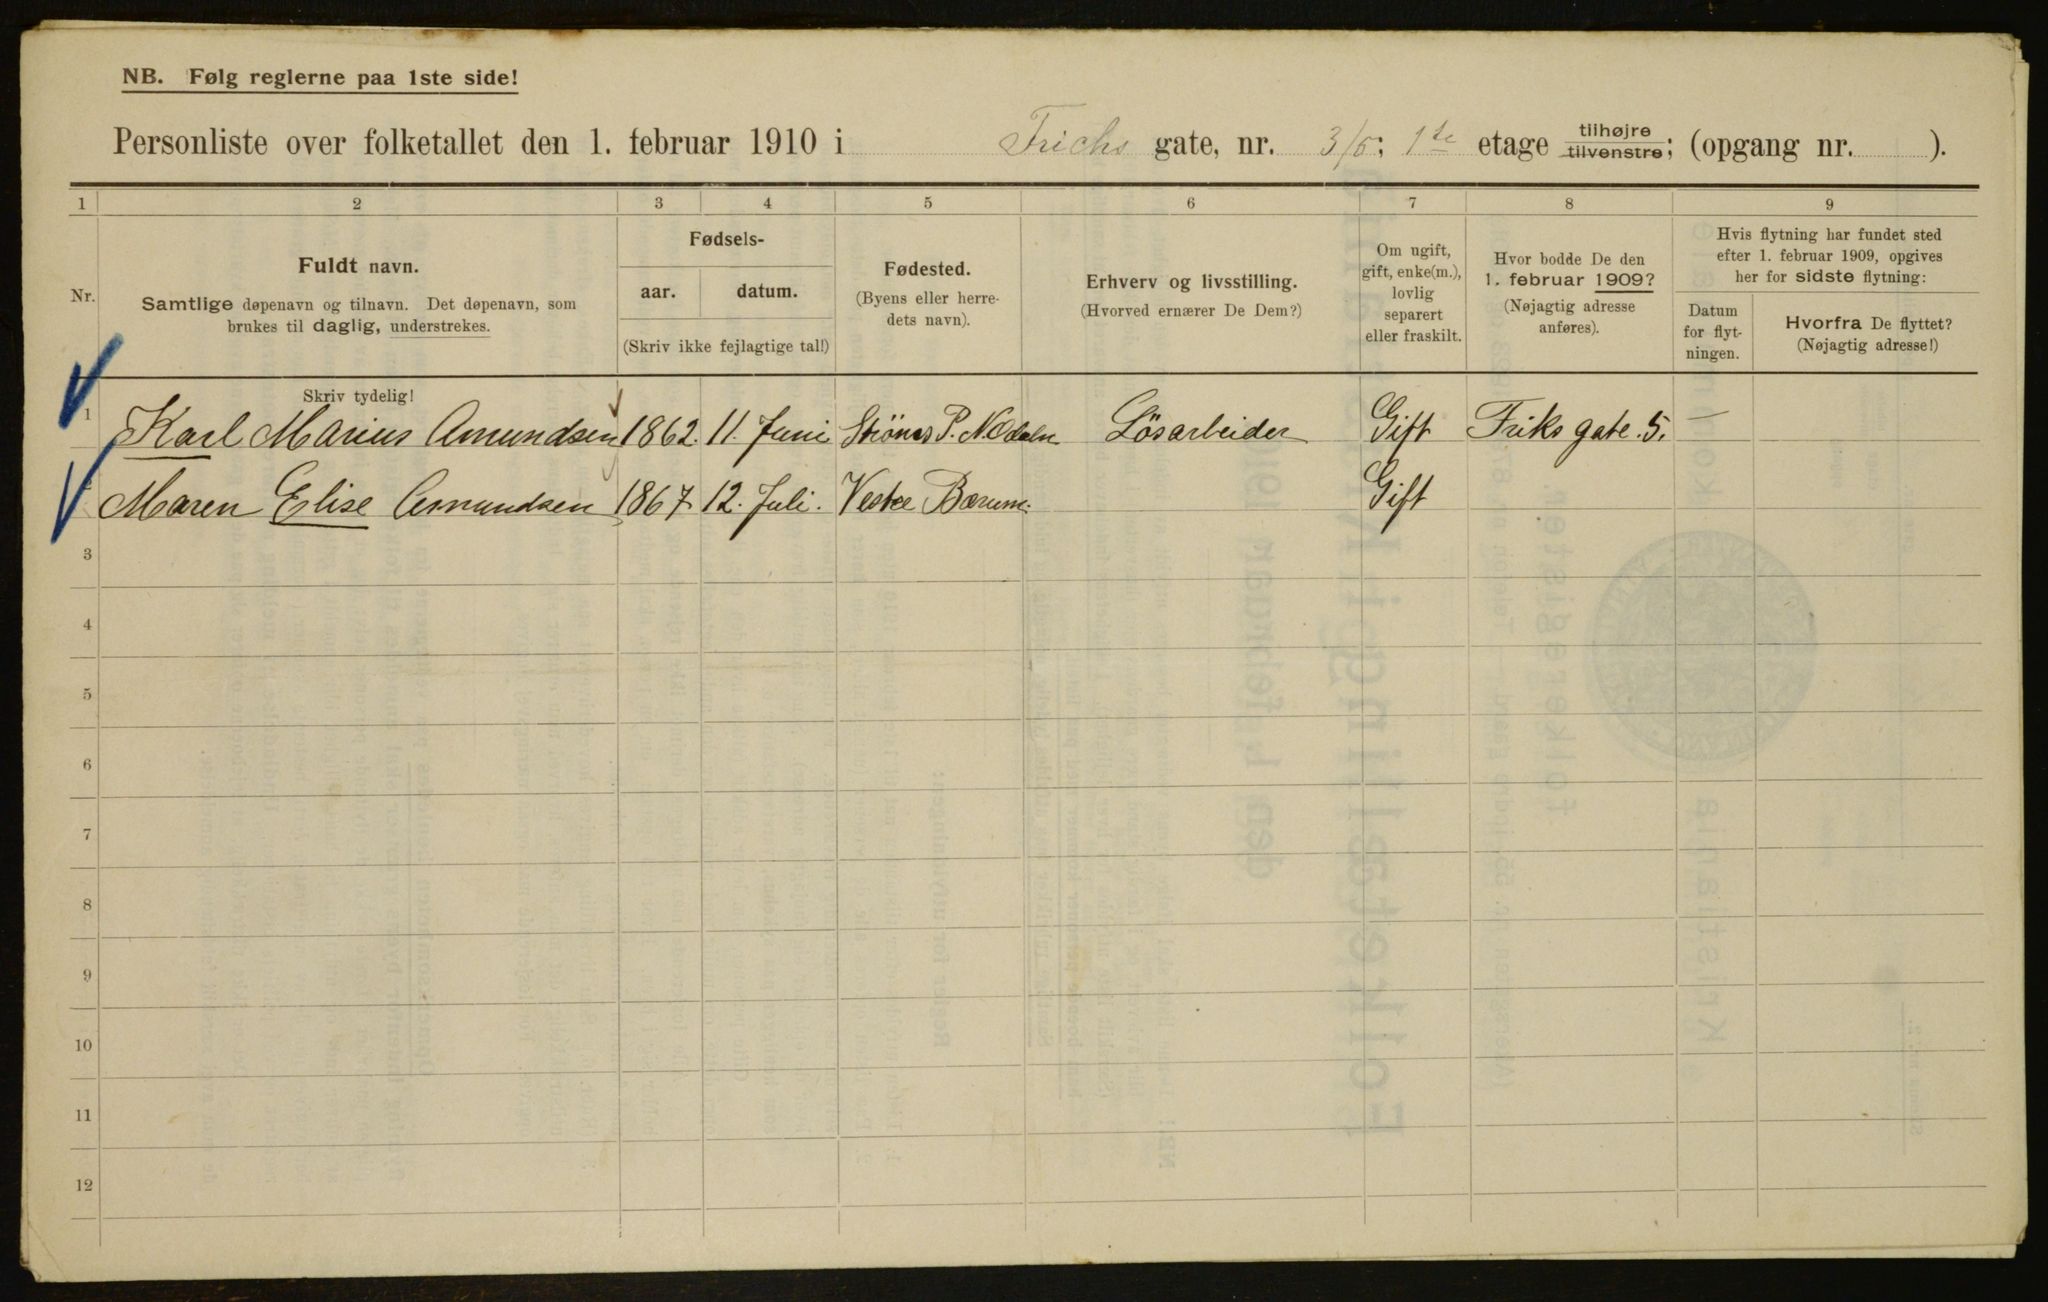 NB. Følg reglerne paa 1ste side!
Personliste over folketallet den 1. februar 1910 i Frichs gate, nr. 3/5; 1te etage tilhøjre tilvenstre; (opgang nr. ).
1 2 3 4 5 6 7 8 9
Nr.
Fuldt navn.
Samtlige døpenavn og tilnavn. Det døpenavn, som
brukes til daglig, understrekes.
Fødsels-
aar. datum.
(Skriv ikke fejlagtige tal!)
Fødested.
(Byens eller herre-
dets navn).
Erhverv og livsstilling.
(Hvorved ernærer De Dem?)
Om ugift,
gift, enke(m.),
lovlig
separert
eller fraskilt.
Hvor bodde De den
1. februar 1909?
(Nøjagtig adresse
anføres).
Hvis flytning har fundet sted
efter 1. februar 1909, opgives
her for sidste flytning:
Datum
for flyt-
ningen.
Hvorfra De flyttet?
(Nøjagtig adresse!)
Skriv tydelig!
1 Karl Marius Amundsen 1862. 11. Juni Strönes P. N. Odalen Lösarbeider Gift Friks gate. 5. —
Maren Elise Amundsen 1867 12. Juli. Vestre Bærum. Gift
3
4
5
6
7
8
9
10
11
12